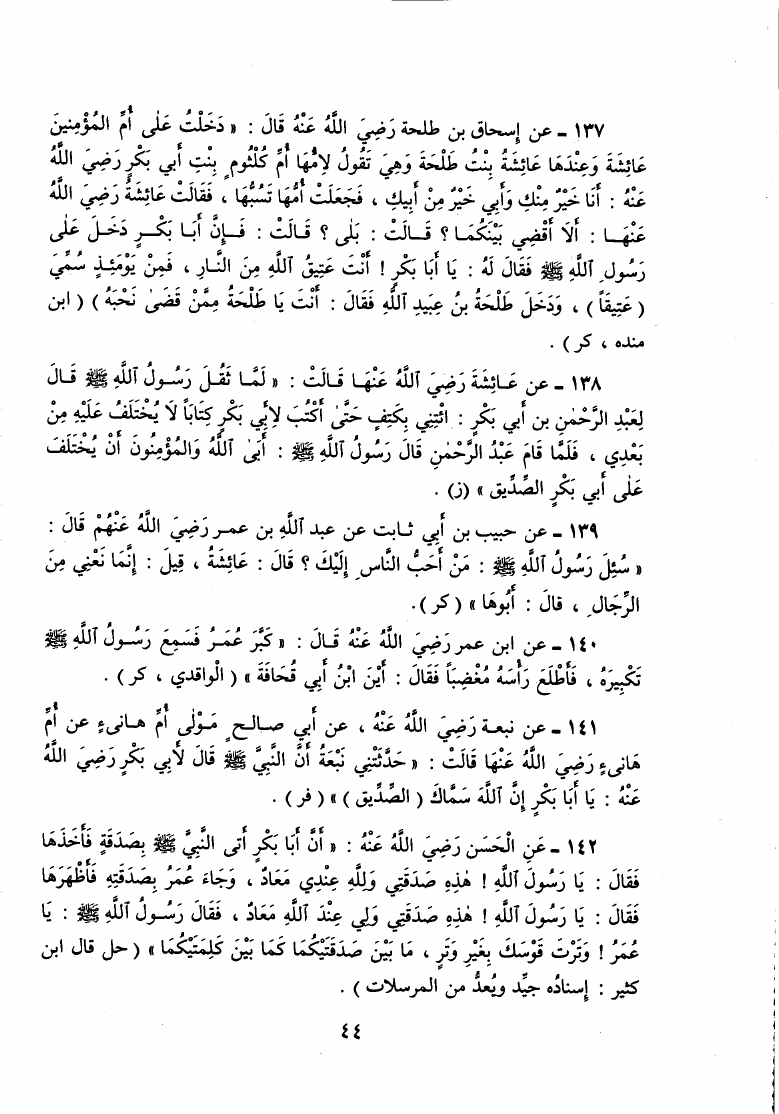 ١٣٧ - عن إسحاق بن طلحة رَضِيَ اللَّهُ عَنْهُ قَالَ : « دَخَلْتُ عَلٰى أُمِّ المُؤْمِنِينَ
عَائِشَةَ وَعِنْدَهَا عَائِشَةُ بِنْتُ طَلْحَةَ وَهِيَ تَقُولُ لِأُمِّهَا أُمِّ كُلْثُومٍ بِنْتِ أَبِي بَكْرٍ رَضِيَ اللَّهُ
عَنْهُ : أَنَا خَيْرٌ مِنْكِ وَأَبِي خَيْرٌ مِنْ أَبِيكِ ، فَجَعَلَتْ أُمُّهَا تَسُبُّهَا ، فَقَالَتْ عَائِشَةُ رَضِيَ اللَّهُ
عَنْهَا : أَلَا أَقْضِي بَيْنَكُمَا ؟ قَالَتْ : بَلٰى ؟ قَالَتْ : فَإِنَّ أَبَا بَكْرٍ دَخَلَ عَلٰى
رَسُولِ ٱللَّهِ ﷺ فَقَالَ لَهُ : يَا أَبَا بَكْرٍ ! أَنْتَ عَتِيقُ ٱللَّهِ مِنَ النَّارِ ، فَمِنْ يَوْمَئِذٍ سُمِّيَ
( عَتِيقاً ) ، وَدَخَلَ طَلْحَةُ بنُ عُبَيدِ ٱللَّهِ فَقَالَ : أَنْتَ يَا طَلْحَةُ مِمَّنْ قَضىٰ نَحْبَهُ ) ( ابن
منده ، كر ) .
١٣٨ - عن عَائِشَةَ رَضِيَ ٱللَّهُ عَنْهَا قَالَتْ : « لَمَّا ثَقُلَ رَسُولُ ٱللَّهِ ﷺ قَالَ
لِعَبْدِ الرَّحْمٰنِ بن أَبي بَكْرٍ : ائْتِنِي بِكَتِفٍ حَتَّىٰ أَكْتُبَ لِأَبِي بَكْرٍ كِتَاباً لَا يُخْتَلَفُ عَلَيْهِ مِنْ
بَعْدِي ، فَلَمَّا قَامَ عَبْدُ الرَّحْمٰنِ قَالَ رَسُولُ ٱللَّهِ ﷺ : أَبىٰ اللَّهُ وَالمُؤْمِنُونَ أَنْ يُخْتَلَفَ
عَلى أَبي بَكْرٍ الصِّدِّيق » (ز) .
١٣٩ - عن حبيب بن أَبِي ثابت عن عبد اللَّهِ بن عمر رَضِيَ اللَّهُ عَنْهُمْ قَالَ :
« سُئِلَ رَسُولُ ٱللَّهِ ﷺ : مَنْ أَحَبُّ النَّاسِ إِلَيْكَ ؟ قَالَ : عَائِشَةُ ، قِيلَ : إِنَّمَا نَعْنِي مِنَ
الرِّجَالِ ، قالَ : أَبُوهَا » ( كر ).
١٤٠ - عن ابن عمر رَضِيَ اللَّهُ عَنْهُ قَالَ : « كَبَّرَ عُمَرُ فَسَمِعَ رَسُولُ ٱللَّهِ ﷺ
تَكْبِيرَهُ ، فَأَطْلَعَ رَأْسَهُ مُغْضِباً فَقَالَ : أَيْنَ ابْنُ أَبِي قُحَافَةَ » ( الْواقدي ، كر ) .
١٤١ - عن نبعة رَضِيَ اللَّهُ عَنْهُ ، عن أَبي صالحٍ مَوْلٰى أُمِّ هانىءٍ عن أُمِّ
هَانىءٍ رَضِيَ اللَّهُ عَنْهَا قَالَتْ : « حَدَّثَتْنِي نَبْعَةُ أَنَّ النَّبِيَّ ﷺ قَالَ لِأَبِي بَكْرٍ رَضِيَ اللَّهُ
عَنْهُ : يَا أَبَا بَكْرٍ إِنَّ ٱللَّهَ سَمَّاكَ ( الصِّدِّيق ) » ( فر ) .
١٤٢ - عَنِ الْحَسَنِ رَضِيَ اللَّهُ عَنْهُ : « أَنَّ أَبَا بَكْرٍ أَتى النَّبِيَّ ﷺ بِصَدَقَةٍ فَأَخَذَهَا
فَقَالَ : يَا رَسُولَ ٱللَّهِ ! هٰذِهِ صَدَقَتِي وَلِلّٰهِ عِنْدِي مَعَادٌ ، وَجَاءَ عُمَرُ بِصَدَقَتِهِ فَأَظْهَرَهَا
فَقَالَ : يَا رَسُولَ ٱللَّهِ ! هٰذِهِ صَدَقَتِي وَلِي عِنْدَ ٱللَّهِ مَعَادٌ ، فَقَالَ رَسُولُ ٱللَّهِ ﷺ : يَا
عُمَرُ ! وَتَرْتَ قَوْسَكَ بِغَيْرِ وَتَرٍ ، مَا بَيْنَ صَدَقَتَيْكُمَا كَمَا بَيْنَ كَلِمَتَيْكُمَا » ( حل قال ابن
كثير : إسنادُه جيِّد ويُعدُّ من المرسلات ) .
٤٤